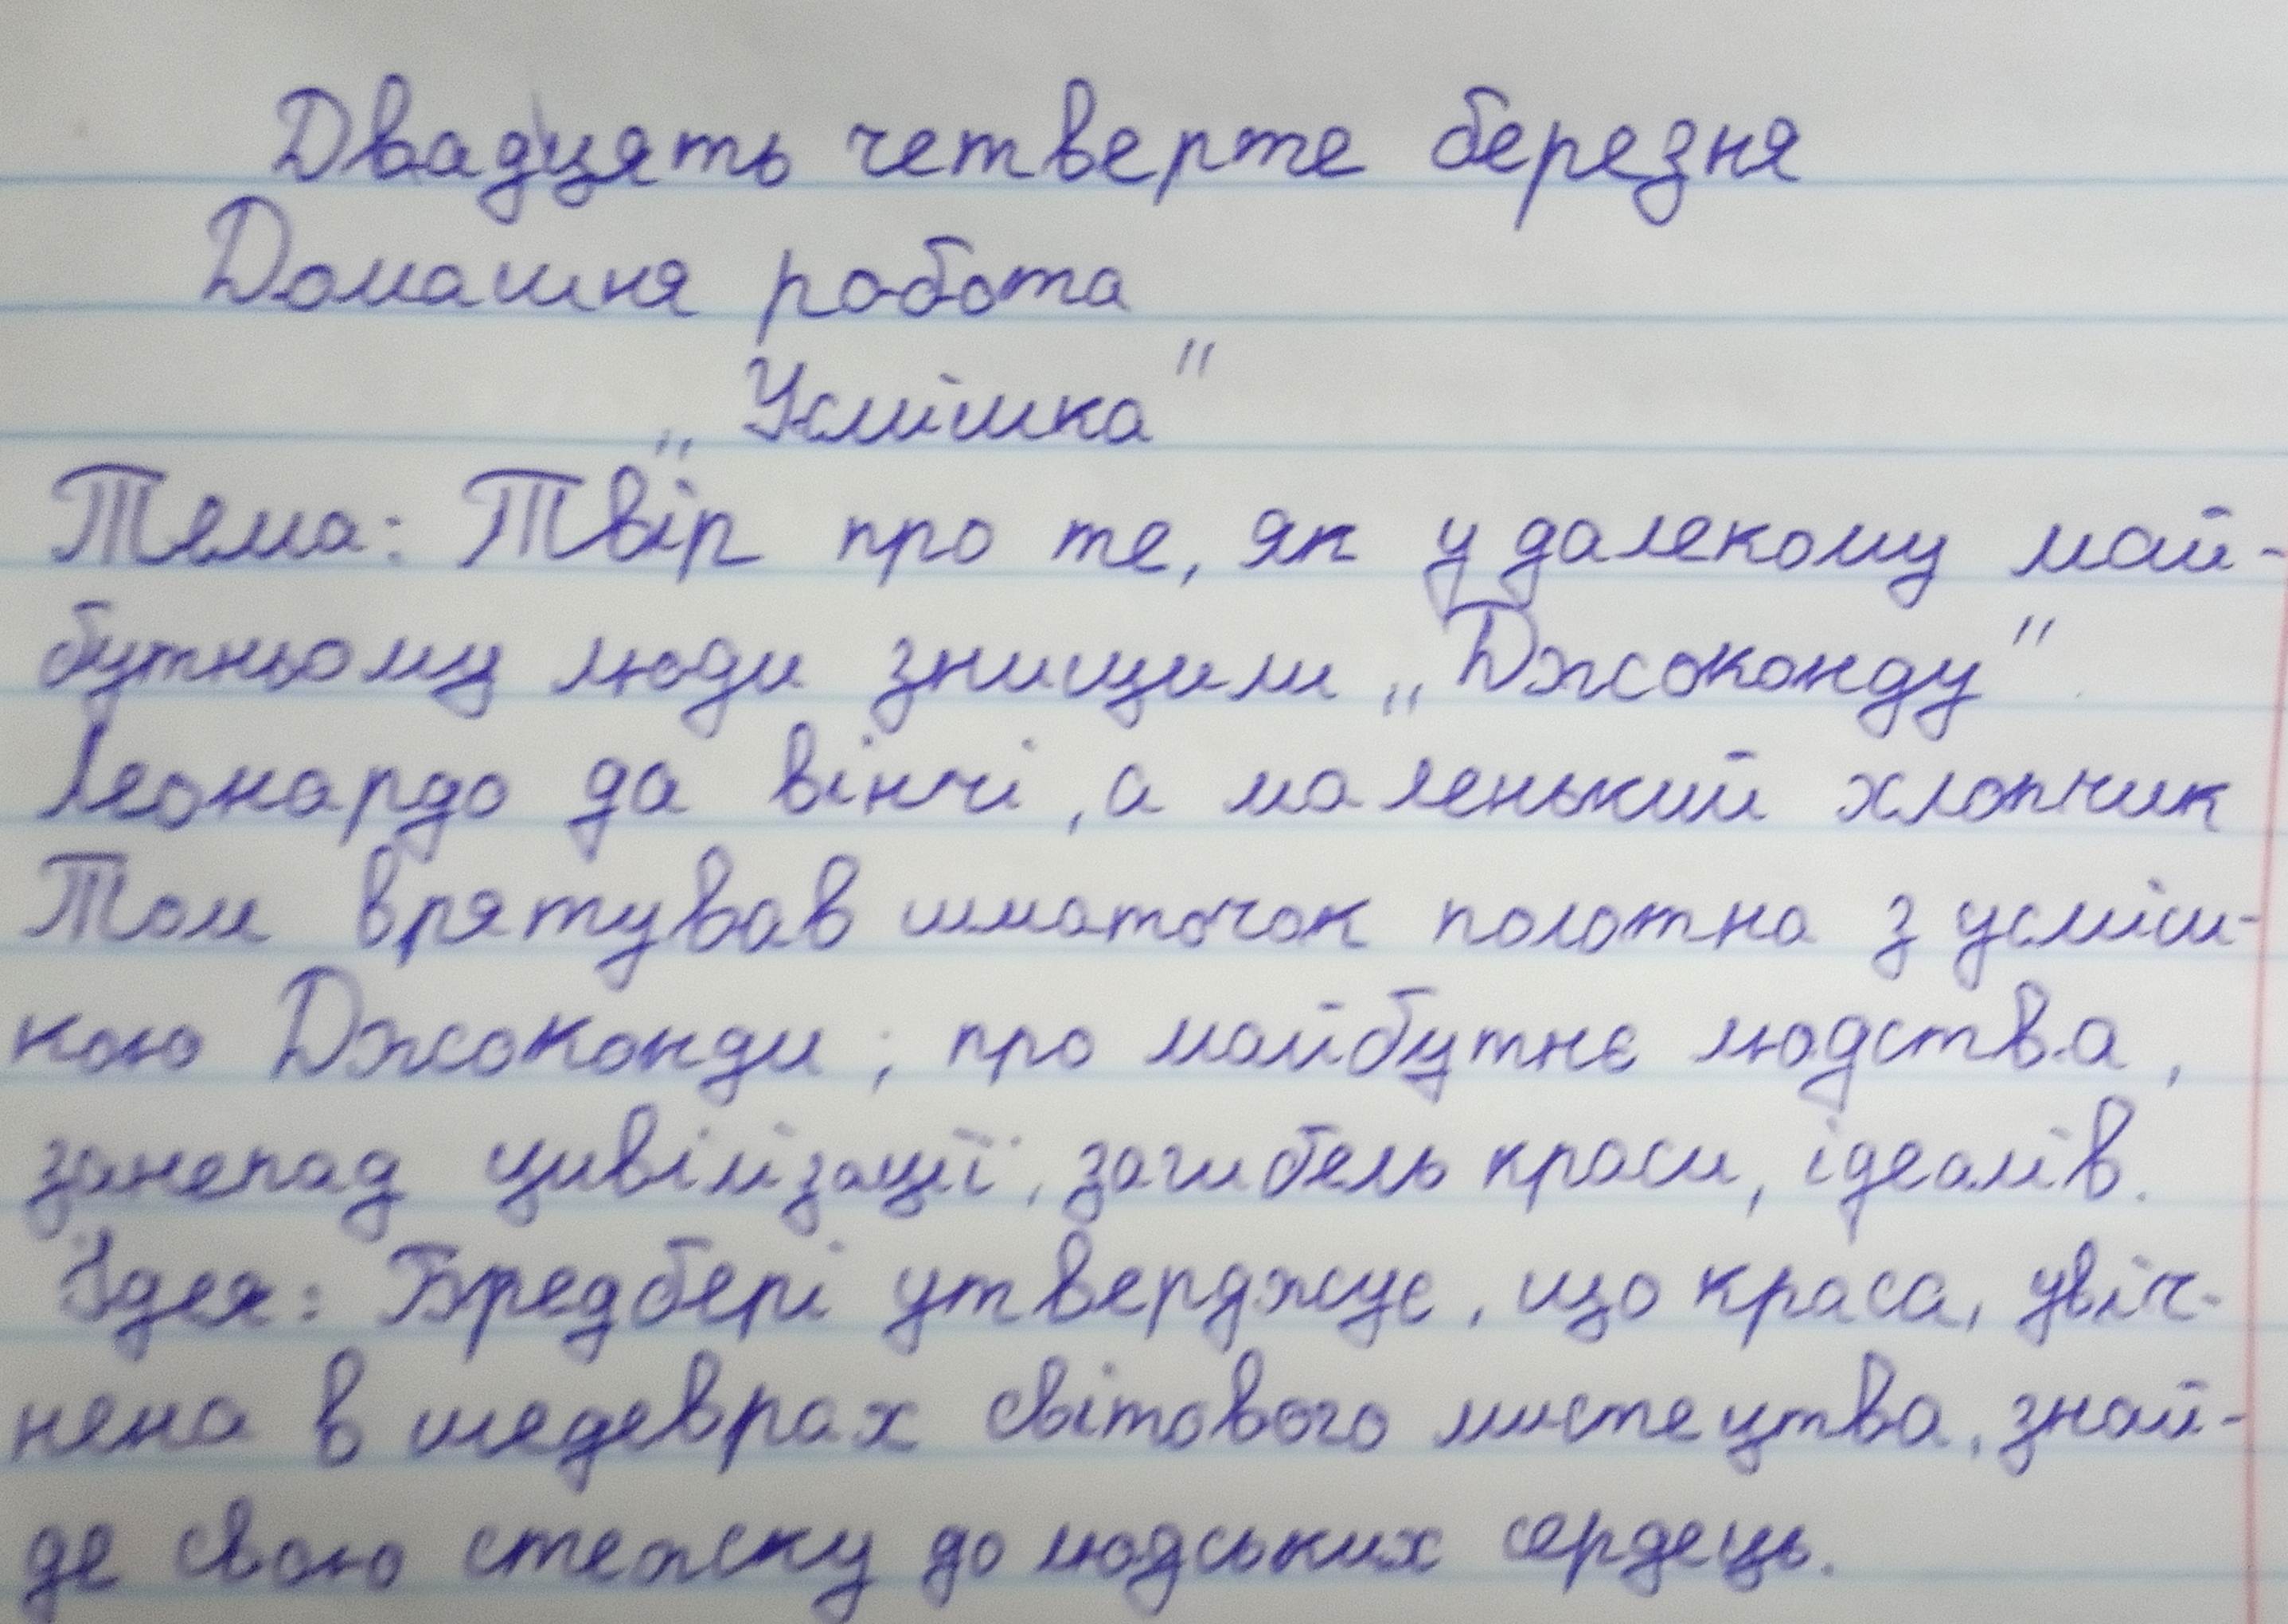 Двадцять четверте березня
Домашня робота
„Усмішка"
Тема: Твір про те, як у далекому май-
бутньому люди знищили „Джоконду"
Леонардо да вінчі, а маленький хлопчик
Том врятував шматочок полотна з усміш-
кою Джоконди; про майбутнє людства,
занепад цивілізації, загибель краси, ідеалів.
Ідея: Бредбері утверджує, що краса, увіч-
нена в шедеврах світового мистецтва, знай-
де свою стежку до людських сердець.